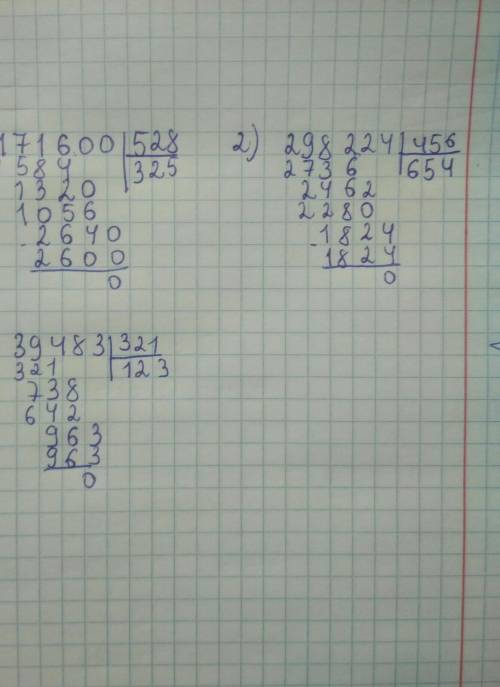 171600 528
584 325
1320
1056
- 2640
2600
0
2) 298224 456
2736 654
2462
2280
- 1824
1824
0
39483 321
321 123
738
642
963
963
0